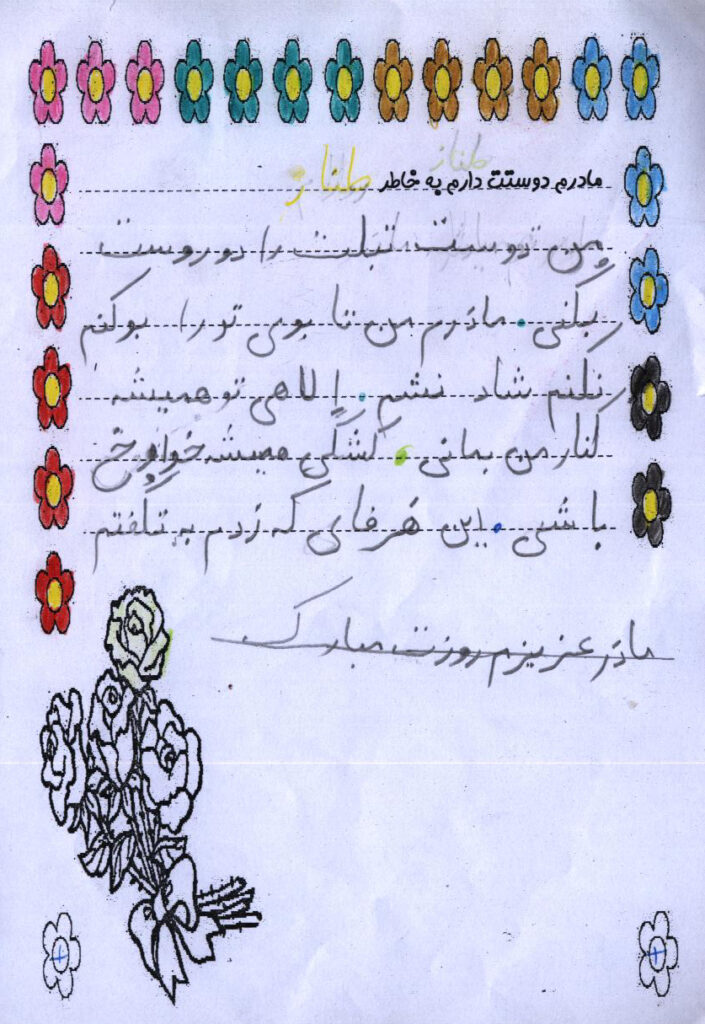 طناز
مادرم دوستت دارم به خاطر طناز
من دوست تبلت را دوروست
بکنی. مادرم من تا بوی تو را بوکنم
نکنم شاد نشم. الاهی تو همیشه
کنار من بمانی. کشکی همیشه
باشی. این هَرفای که زدم به تلفتم
مادَر عزیزم روزت مبارک